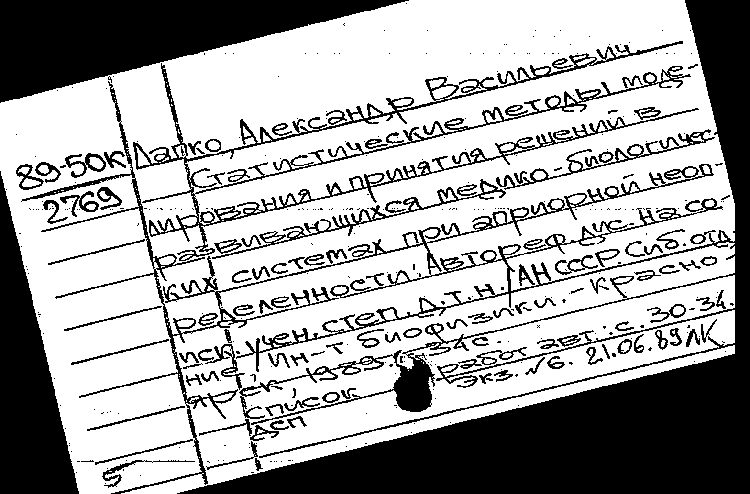 89-50К
2769
Лапко, Александр Васильевич.
Статистические методы моде-
лирования и принятия решений в
развивающихся медико-биологичес-
ких системах при априорной неоп-
ределенности: Автореф. дис. на со-
иск. учен. степ. д.т.н. / АН СССР Сиб. отд-
ние, Ин-т биофизики. - Красно-
ярск, 1989. - 34с.
Список работ авт.: с. 30-34.
ДСП Экз. №6. 21.06.89 ЛК
5